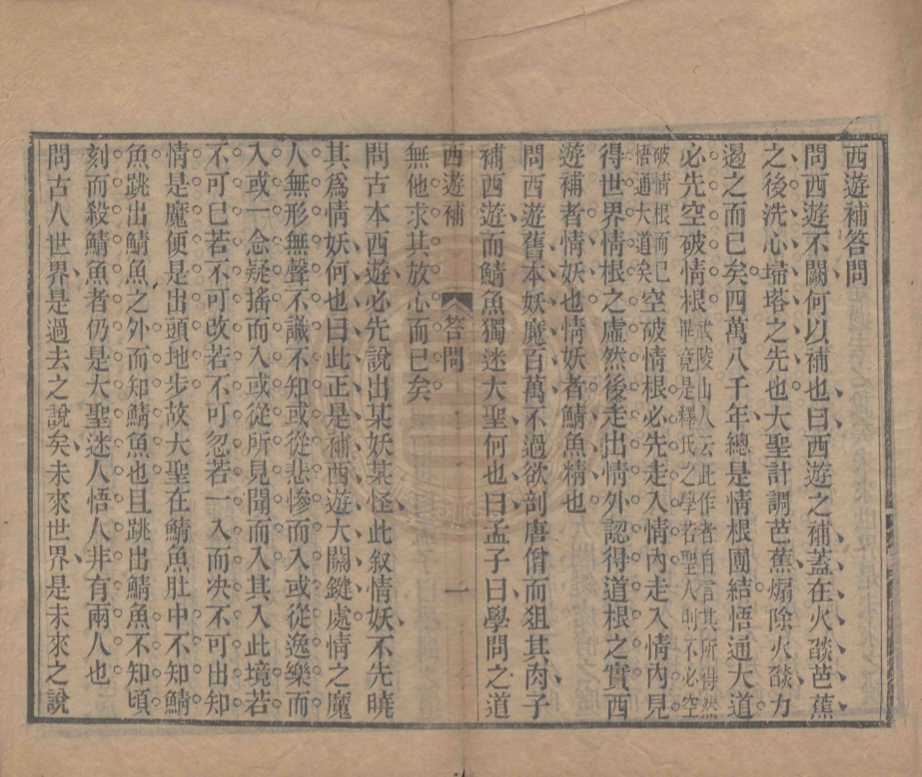 西遊補答問
問西遊不闕何以補也曰西遊之補蓋在火燄芭蕉
之後洗心埽塔之先也大聖計調芭蕉煽除火燄力
遏之而已矣四萬八千年總是情根團結悟通大道
必先空破情根武陵山人云此作者自言其所得然
畢竟是釋氏之學若聖人則不必空
破情根而已
悟通大道矣空破情根必先走入情內走入情內見
得世界情根之虛然後走出情外認得道根之實西
遊補者情妖也情妖者鯖魚精也
問西遊舊本妖魔百萬不過欲剖唐僧而俎其肉子
補西遊而鯖魚獨迷大聖何也曰孟子曰學問之道
西遊補 答問 一
無他求其放心而已矣
問古本西遊必先說出某妖某怪此叙情妖不先曉
其爲情妖何也曰此正是補西遊大關鍵處情之魔
人無形無聲不識不知或從悲慘而入或從逸樂而
入或一念疑搖而入或從所見聞而入其入此境若
不可已若不可改若不可忽若一入而決不可出知
情是魔便是出頭地步故大聖在鯖魚肚中不知鯖
魚跳出鯖魚之外而知鯖魚也且跳出鯖魚不知頃
刻而殺鯖魚者仍是大聖迷人悟人非有兩人也
問古人世界是過去之說矣未來世界是未來之說